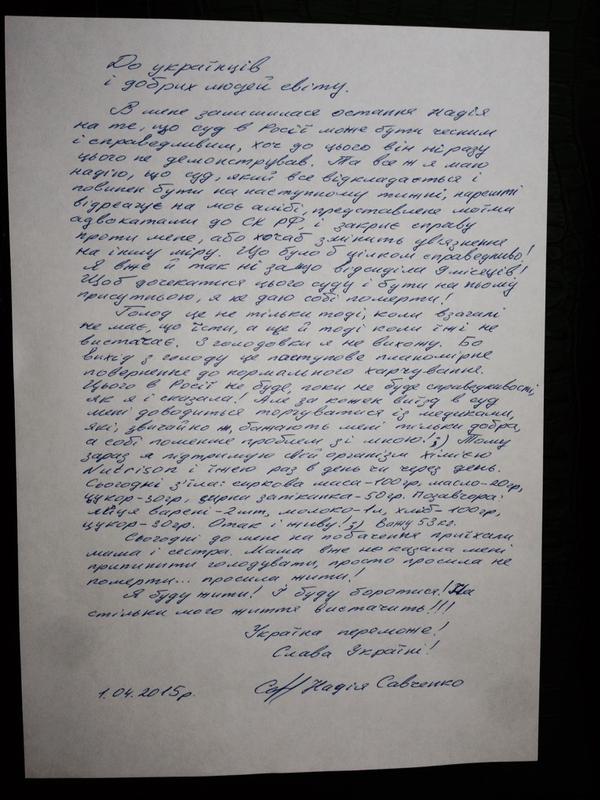 До українців
і добрих людей світу.
В мене залишилася остання надія
на те, що суд в Росії може бути чесним
і справедливим, хоч до цього він ні разу
цього не демонстрував. Та все ж я маю
надію, що суд, який все відкладається і
повинен бути на наступному тижні, нарешті
відреагує на моє алібі, представлене моїми
адвокатами до СК РФ, і закриє справу
проти мене, або хоча б змінить ув'язнення
на іншу міру. Що було б цілком справедливо!
Я вже й так ні за що відсиділа 9 місяців!
Щоб дочекатися цього суду і бути на ньому
присутньою, я не даю собі померти!
Голод це не тільки тоді, коли взагалі
не має, що їсти, а ще й тоді коли їжі не
вистачає. З голодовки я не вихожу. Бо
вихід з голоду це поступове планомірне
повернення до нормального харчування.
Цього в Росії не буде, поки не буде справедливості,
як я і сказала! Але за кожен виїзд в суд
мені доводиться торгуватися із медиками,
які, звичайно ж, бажають мені тільки добра,
а собі поменше проблем зі мною! ;) Тому
зараз я підтримую свій організм хімією
Nutrison і їжею раз в день чи через день.
Сьогодні з'їла: сиркова маса-100гр, масло-20гр,
цукор-30гр, сирна запіканка-50гр. Позавчора:
яйця варені-2шт, молоко-1л, хліб-100гр,
цукор-30гр. Отак і живу! ;) Вожу 53кг.
Сьогодні до мене на побачення приїхали
мама і сестра. Мама вже не казала мені
припинити голодувати, просто просила не
померти... просила жити!
Я буду жити! Й буду боротися! На
стільки мого життя вистачить!!!
Україна переможе!
Слава Україні!
1.04.2015р. Надія Савченко